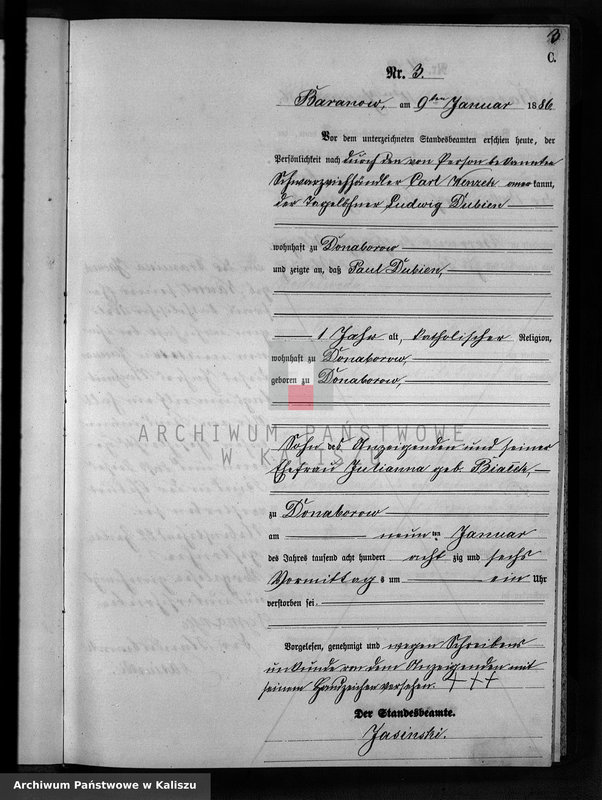 3
C.
Nr. 3.
Baranow, am 9ten Januar 1886
Vor dem unterzeichneten Standesbeamten erschien heute, der
Persönlichkeit nach durch den von Person bekannten
Schwarzviehhändler Carl Wenzek anerkannt,
der Tagelöhner Ludwig Dubien
wohnhaft zu Donaborow
und zeigte an, daß Paul Dubien,
1 Jahr alt, katholischer Religion,
wohnhaft zu Donaborow,
geboren zu Donaborow,
ARCHIWUM PAŃSTWOWE
W KALISZU
Sohn des Anzeigenden und seiner
Ehefrau Julianna geb.
zu Donaborow
am neunten Januar
des Jahres tausend acht hundert achtzig und sechs
Vormittags um ein Uhr
verstorben sei.
Vorgelesen, genehmigt und wegen Schreibens
unkunde von dem Anzeigenden mit
seinem Handzeichen versehen. +++
Der Standesbeamte.
Jasinski.
Archiwum Państwowe w Kaliszu